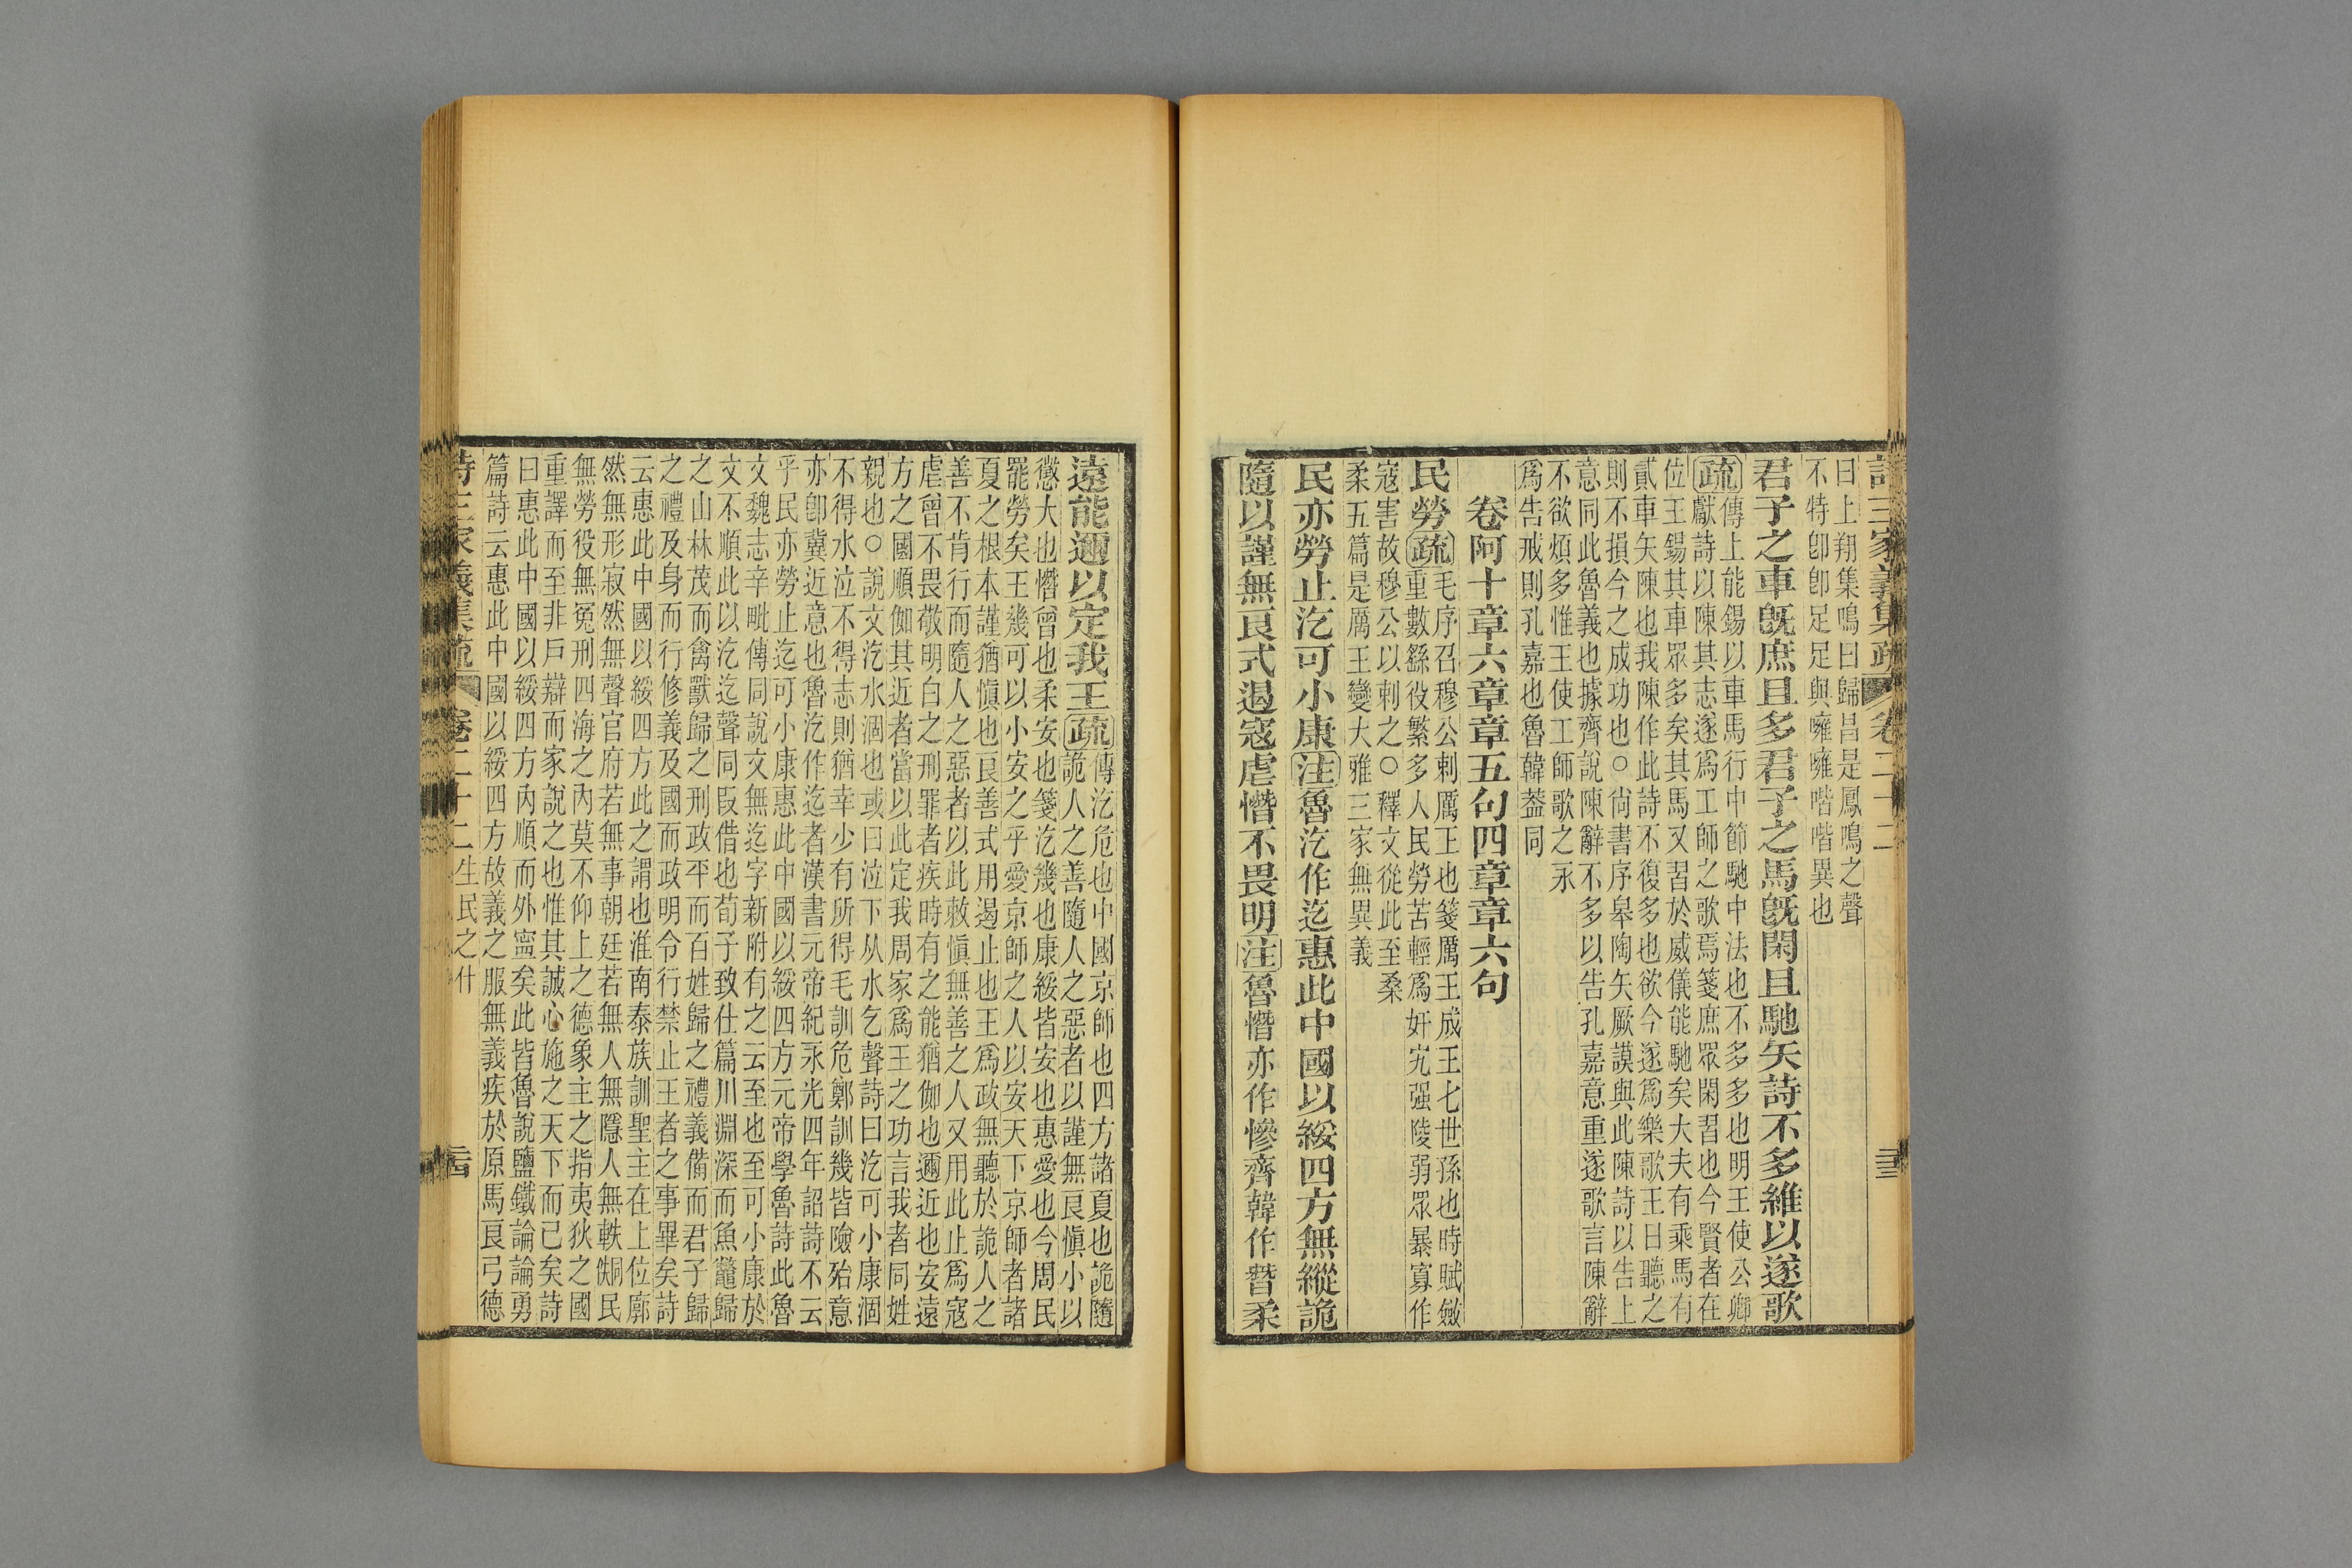 詩三家義集疏 卷二十二
曰上翔集鳴曰歸昌是鳳鳴之聲
不特卽卽足足與噰噰喈喈異也
君子之車旣庶且多君子之馬旣閑且馳矢詩不多維以遂歌
疏傳上能錫以車馬行中節馳中法也不多多也明王使公卿
獻詩以陳其志遂爲工師之歌焉箋庶眾閑習也今賢者在
位王錫其車眾多矣其馬又習於威儀能馳矣大夫有乘馬有
貳車矢陳也我陳作此詩不復多也欲今遂爲樂歌王日聽之
則不損今之成功也○尙書序皋陶矢厥謨與此陳詩以告上
意同此魯義也據齊說陳辭不多以告孔嘉意重遂歌言陳辭
不欲煩多惟王使工師歌之永
爲告戒則孔嘉也魯韓葢同
卷阿十章六章章五句四章章六句
民勞疏毛序召穆公剌厲王也箋厲王成王七世孫也時賦斂
重數繇役繁多人民勞苦輕爲奸宄强陵弱眾暴寡作
寇害故穆公以剌之○釋文從此至桑
柔五篇是厲王變大雅三家無異義
民亦勞止汔可小康注魯汔作迄惠此中國以綏四方無縱詭
隨以謹無良式遏寇虐憯不畏明注魯憯亦作慘齊韓作朁柔
遠能邇以定我王疏傳汔危也中國京師也四方諸夏也詭隨
詭人之善隨人之惡者以謹無良愼小以
懲大也憯曾也柔安也箋汔幾也康綏皆安也惠愛也今周民
罷勞矣王幾可以小安之乎愛京師之人以安天下京師者諸
夏之根本謹猶愼也良善式用遏止也王爲政無聽於詭人之
善不肯行而隨人之惡者以此敕愼無善之人又用此止爲寇
虐曾不畏敬明白之刑罪者疾時有之能猶伽也邇近也安遠
方之國順伽其近者當以此定我周家爲王之功言我者同姓
親也○說文汔水涸也或曰泣下从水乞聲詩曰汔可小康涸
不得水泣不得志則猶幸少有所得毛訓危鄭訓幾皆險殆意
亦卽冀近意也魯汔作迄者漢書元帝紀永光四年詔詩不云
乎民亦勞止迄可小康惠此中國以綏四方元帝學魯詩此魯
文魏志辛毗傳同說文無迄字新附有之云至也至可小康於
文不順此以汔迄聲同叚借也荀子致仕篇川淵深而魚鼈歸
之山林茂而禽獸歸之刑政平而百姓歸之禮義備而君子歸
之禮及身而行修義及國而政明令行禁止王者之事畢矣詩
云惠此中國以綏四方此之謂也淮南泰族訓聖主在上位廓
然無形寂然無聲官府若無事朝廷若無人無隱人無軼民
無勞役無冤刑四海之內莫不仰上之德象主之指夷狄之國
重譯而至非戶辯而家說之也惟其誠心施之天下而已矣詩
曰惠此中國以綏四方內順而外寧矣此皆魯說鹽鐵論論勇
篇詩云惠此中國以綏四方故義之服無義疾於原馬良弓德
詩三家義集疏 卷二十二 生民之什